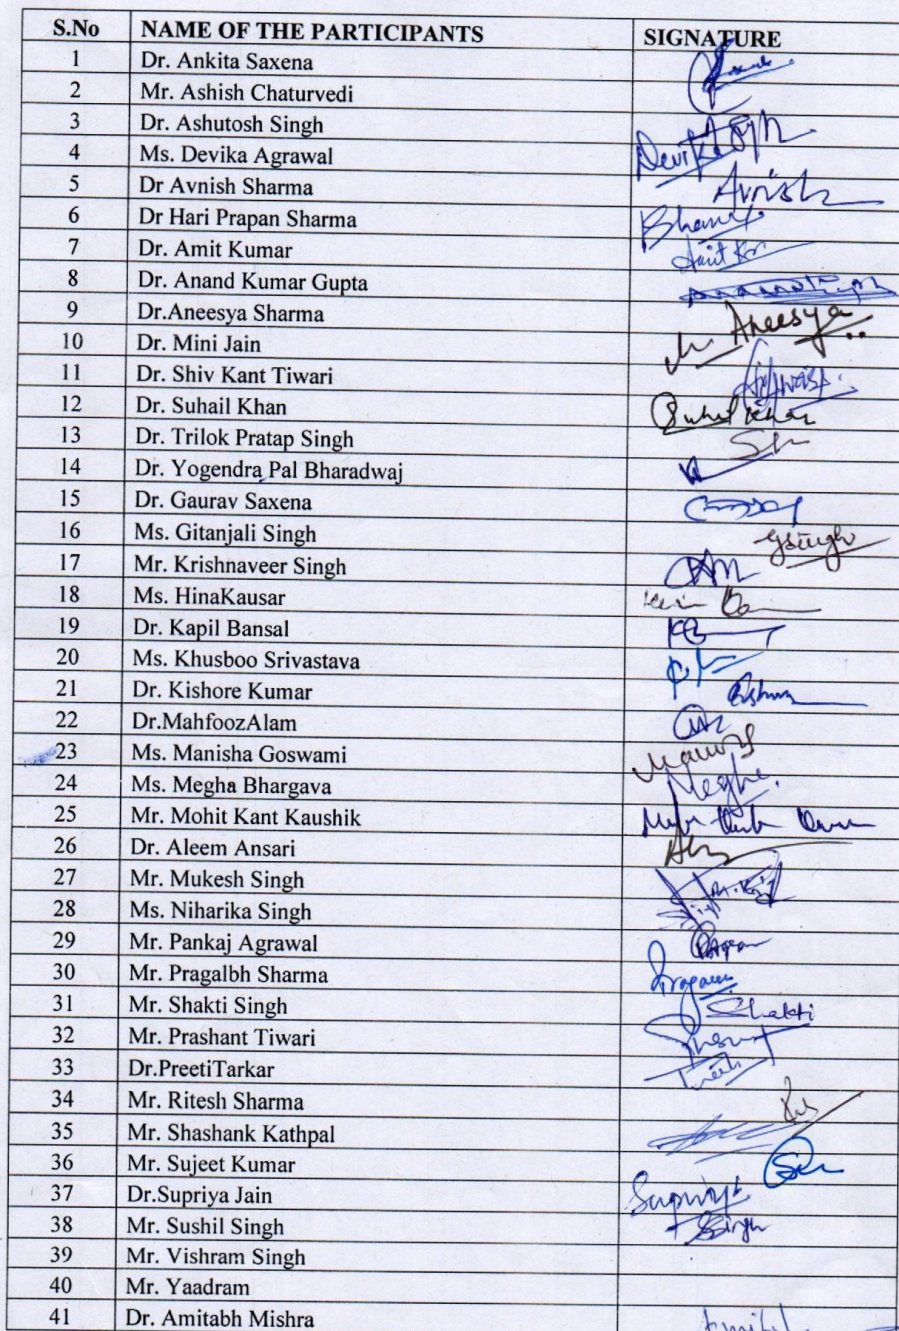 S.No NAME OF THE PARTICIPANTS SIGNATURE
1 Dr. Ankita Saxena
2 Mr. Ashish Chaturvedi
3 Dr. Ashutosh Singh
4 Ms. Devika Agrawal Devika
5 Dr Avnish Sharma Avnish
6 Dr Hari Prapan Sharma
7 Dr. Amit Kumar Amit Kr
8 Dr. Anand Kumar Gupta
9 Dr.Aneesya Sharma Aneesya
10 Dr. Mini Jain
11 Dr. Shiv Kant Tiwari
12 Dr. Suhail Khan Suhail Khan
13 Dr. Trilok Pratap Singh
14 Dr. Yogendra Pal Bharadwaj
15 Dr. Gaurav Saxena
16 Ms. Gitanjali Singh gsingh
17 Mr. Krishnaveer Singh
18 Ms. HinaKausar
19 Dr. Kapil Bansal
20 Ms. Khusboo Srivastava
21 Dr. Kishore Kumar
22 Dr.MahfoozAlam
23 Ms. Manisha Goswami
24 Ms. Megha Bhargava Megha.
25 Mr. Mohit Kant Kaushik
26 Dr. Aleem Ansari
27 Mr. Mukesh Singh
28 Ms. Niharika Singh
29 Mr. Pankaj Agrawal
30 Mr. Pragalbh Sharma
31 Mr. Shakti Singh Shakti
32 Mr. Prashant Tiwari
33 Dr.PreetiTarkar Preeti
34 Mr. Ritesh Sharma
35 Mr. Shashank Kathpal
36 Mr. Sujeet Kumar
37 Dr.Supriya Jain Supriya
38 Mr. Sushil Singh SSingh
39 Mr. Vishram Singh
40 Mr. Yaadram
41 Dr. Amitabh Mishra